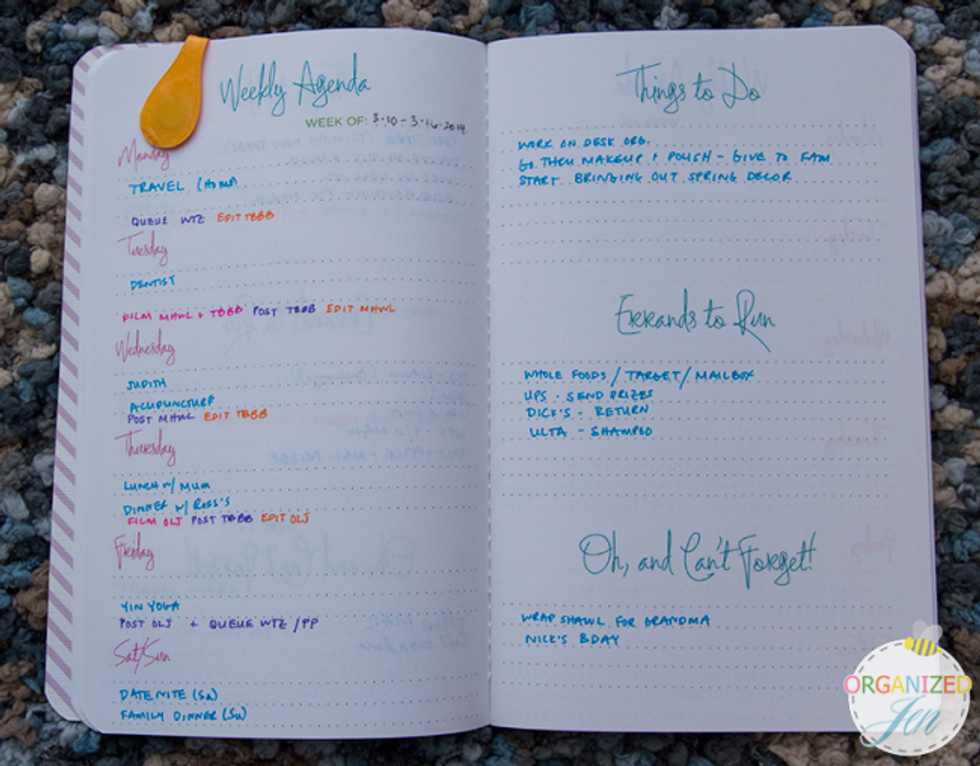 Weekly Agenda
WEEK OF: 3·10 - 3·16·2014
Monday
TRAVEL (HOME)
QUEUE WTZ EDIT TBBB
Tuesday
DENTIST
FILM MHWL + TBBB POST TBBB EDIT MHWL
Wednesday
JUDITH
ACUPUNCTURE
POST MHWL EDIT TBBB
Thursday
LUNCH W/ MUM
DINNER W/ ROSS'S
FILM OLJ POST TBBB EDIT OLJ
Friday
YIN YOGA
POST OLJ + QUEUE WTZ / PP
Sat/Sun
DATE NITE (SA)
FAMILY DINNER (SU)
Things to Do
WORK ON DESK ORG.
GO THRU MAKEUP + POLISH - GIVE TO FAM
START BRINGING OUT SPRING DECOR
Errands to Run
WHOLE FOODS / TARGET / MAILBOX
UPS - SEND PRIZES
DICK'S - RETURN
ULTA - SHAMPOO
Oh, and Can't Forget!
WRAP SHAWL FOR GRANDMA
NICK'S BDAY
ORGANIZED
Jen